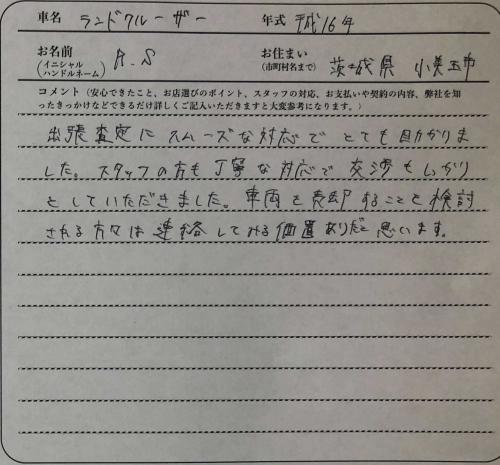 車名 ランドクルーザー 年式 平成16年
お名前 (イニシャル ハンドルネーム) A.S お住まい (市町村名まで) 茨城県 小美玉市
コメント（安心できたこと、お店選びのポイント、スタッフの対応、お支払いや契約の内容、弊社を知
ったきっかけなどできるだけ詳しくご記入いただきますと大変参考になります。）
出張査定にスムーズな対応でとても助かりま
した。スタッフの方も丁寧な対応で交渉もしっかり
としていただきました。車両を売却することを検討
される方々は連絡してみる価置ありだと思います。